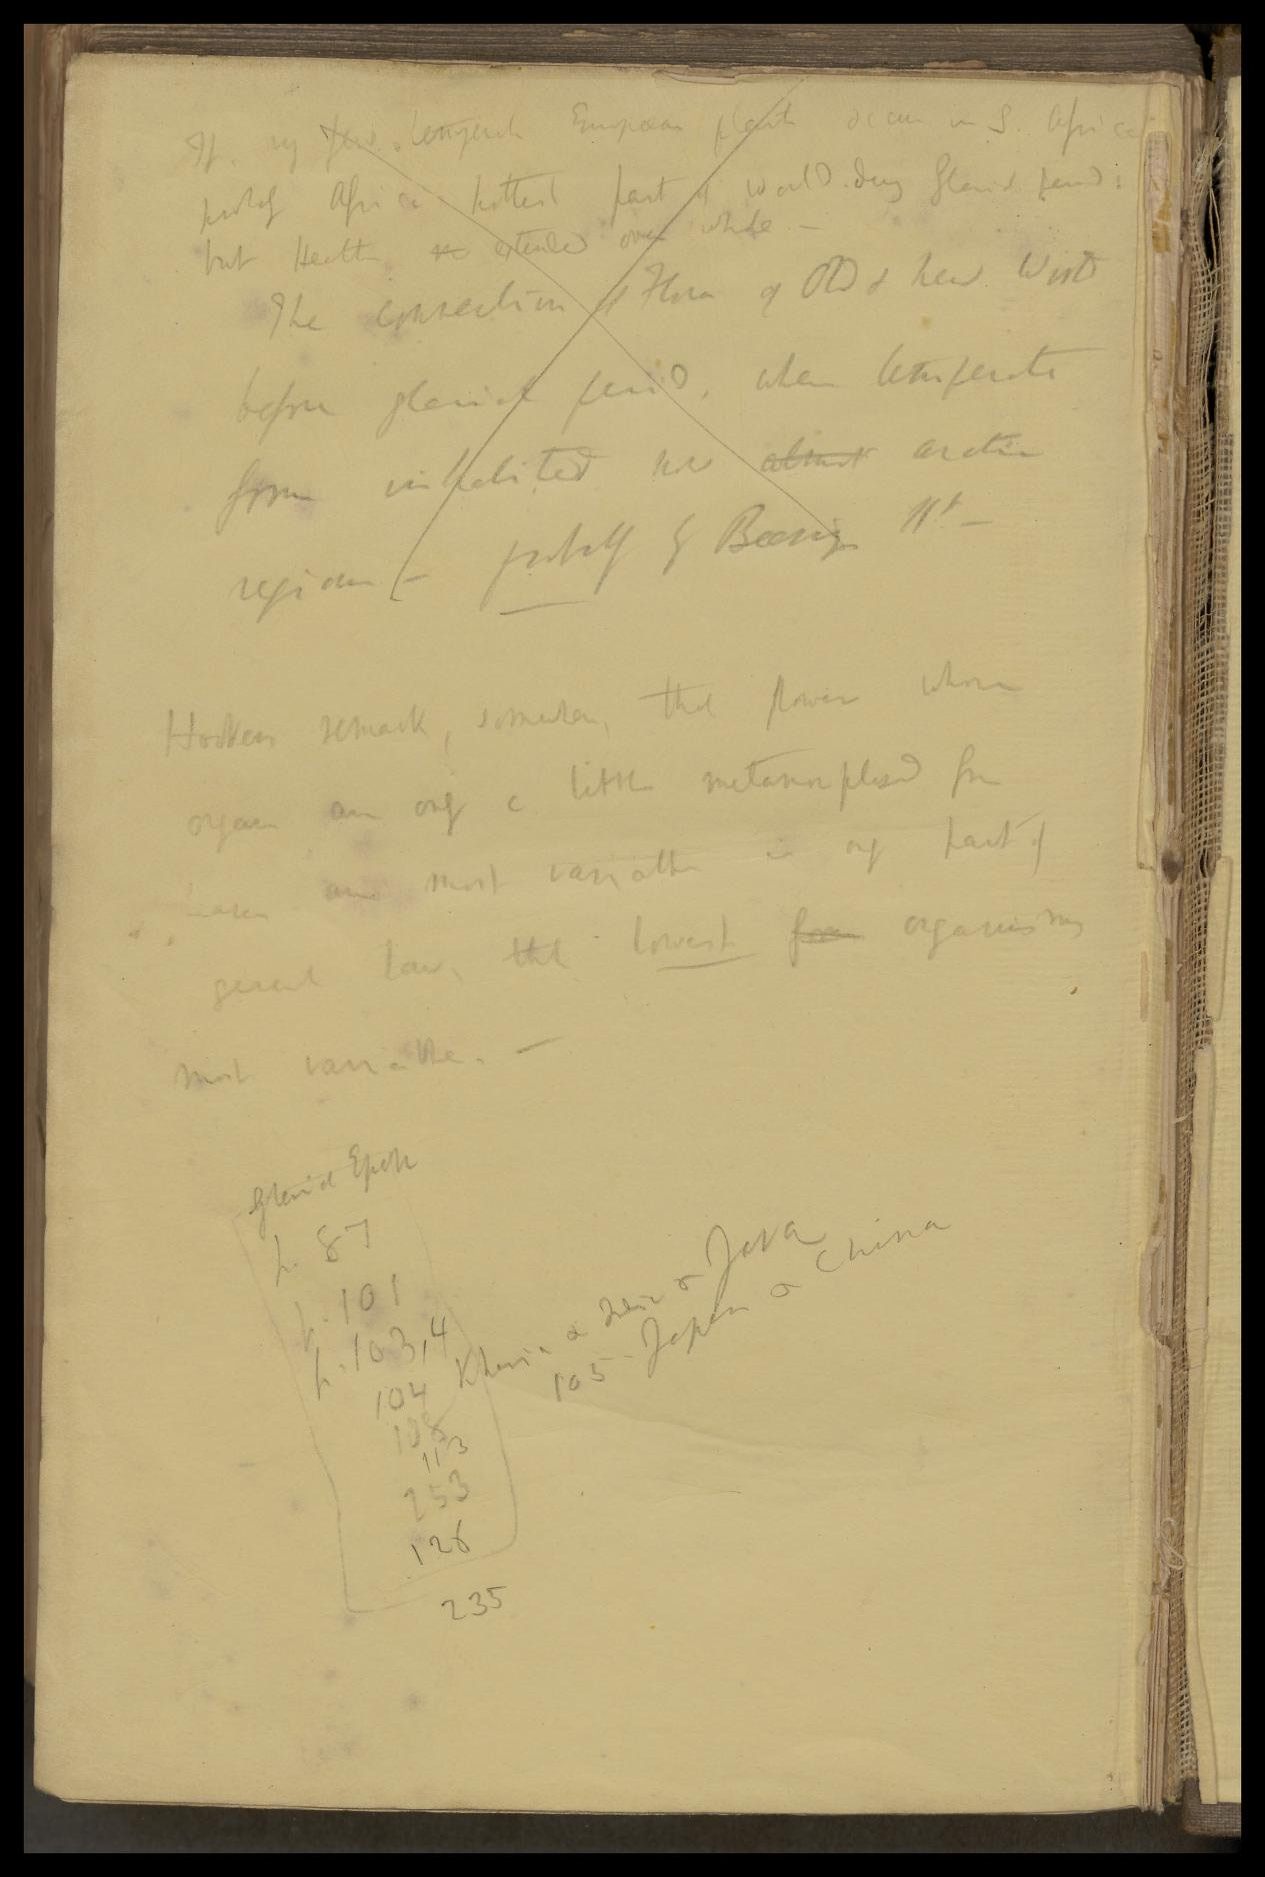 If very few temperate European plants occur in S. Africa
probably Africa hottest part of world during Glacial period:
but Heaths extended over whole —
The connection of Flora of Old & New World
before glacial period, when temperate
forms inhabited now almost arctic
regions — probably by Beering St —
Hookers remark, somewhere, that flowers whose
organs are only a little metamorphosed from
leaves are most variable is only part of
general law, that lowest organisms
most variable. —
Glacial Epoch
p. 87
p. 101
p. 103, 4
104 Khasia & & Java
105 - Japan & China
108
113
253
126
235